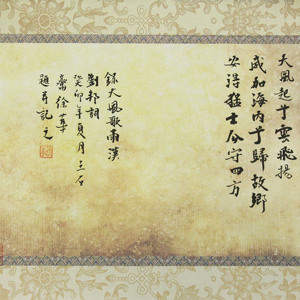 大風起兮雲飛揚
威加海内兮歸故鄉
安得猛士兮守四方
錄大風歌西漢
劉邦詞
癸卯年夏月三石
齋徐
題并記之